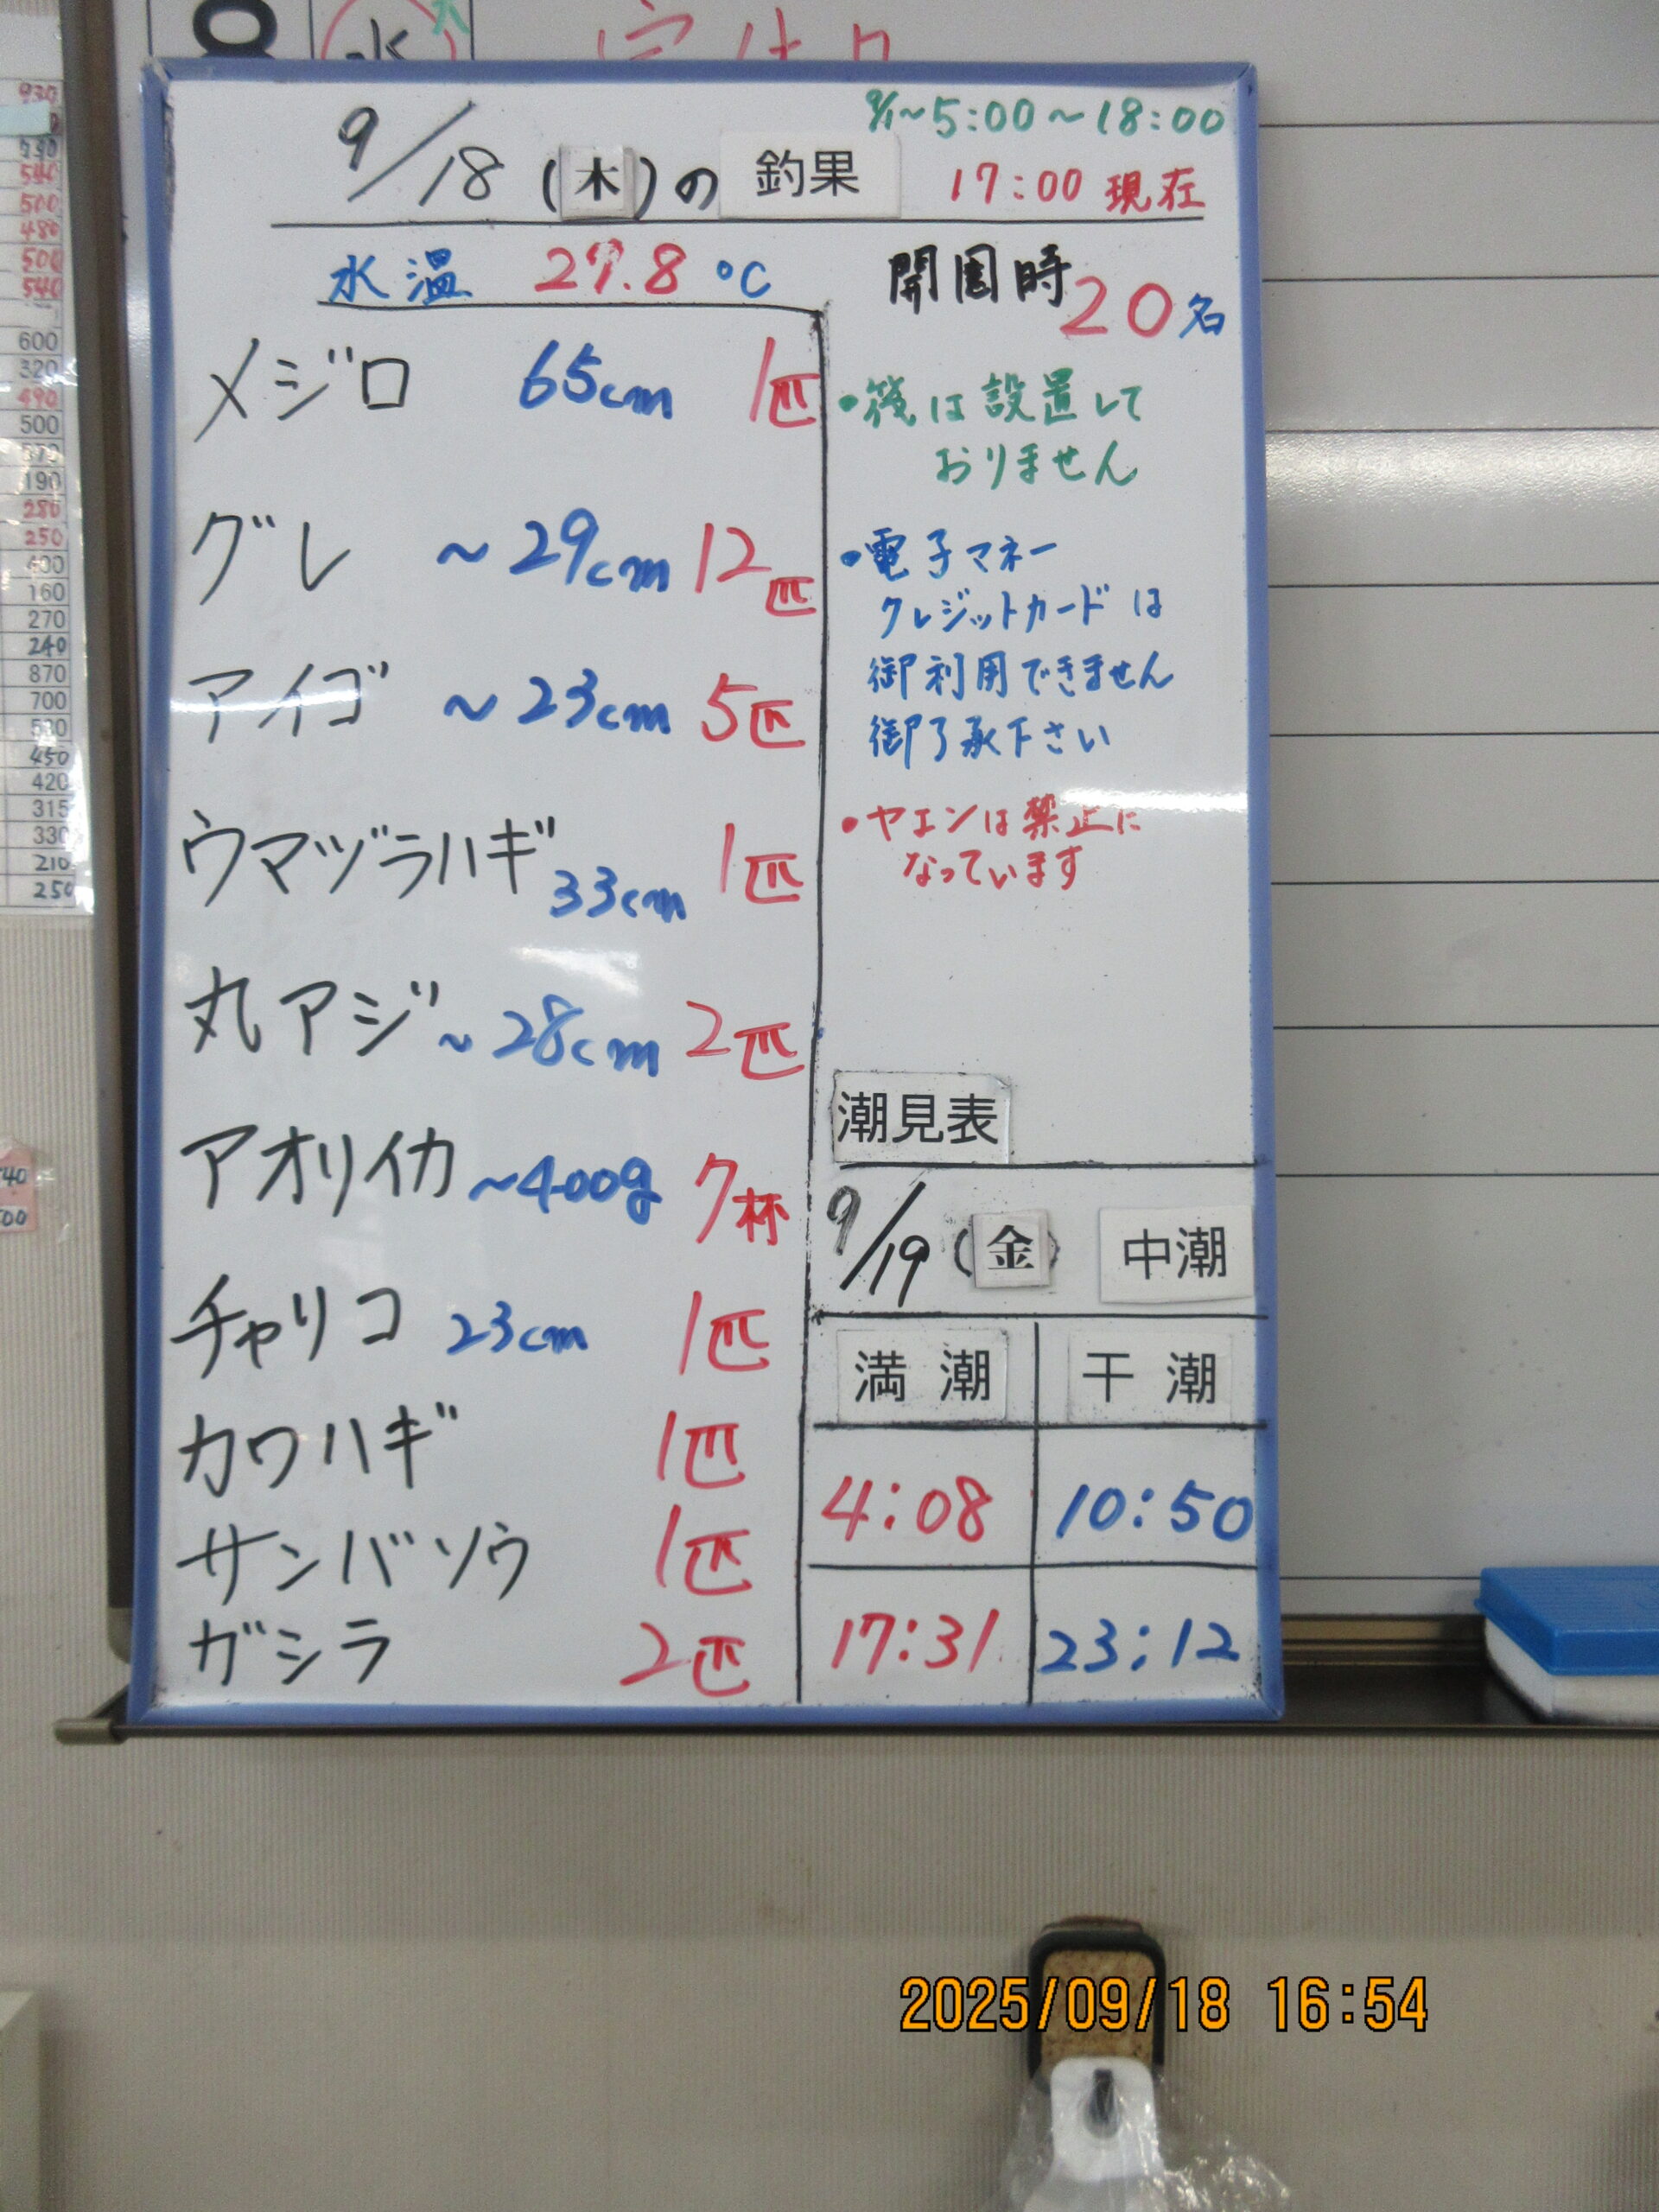 9/18 (木)の 釣果
9/1~5:00~18:00
17:00 現在
水温 27.8 ℃
開園時 20名
メジロ 65cm 1匹
グレ ~29cm 12匹
アイゴ ~23cm 5匹
ウマヅラハギ 33cm 1匹
丸アジ ~28cm 2匹
アオリイカ ~400g 7杯
チャリコ 23cm 1匹
カワハギ 1匹
サンバソウ 1匹
ガシラ 2匹
・筏は設置して
おりません
・電子マネー
クレジットカードは
御利用できません
御了承下さい
・ヤエンは禁止に
なっています
潮見表
9/19 (金) 中潮
満潮 干潮
4:08 10:50
17:31 23:12
930
540
500
480
500
540
600
320
490
500
370
190
280
250
400
160
270
240
870
700
520
450
420
315
330
210
250
2025/09/18 16:54